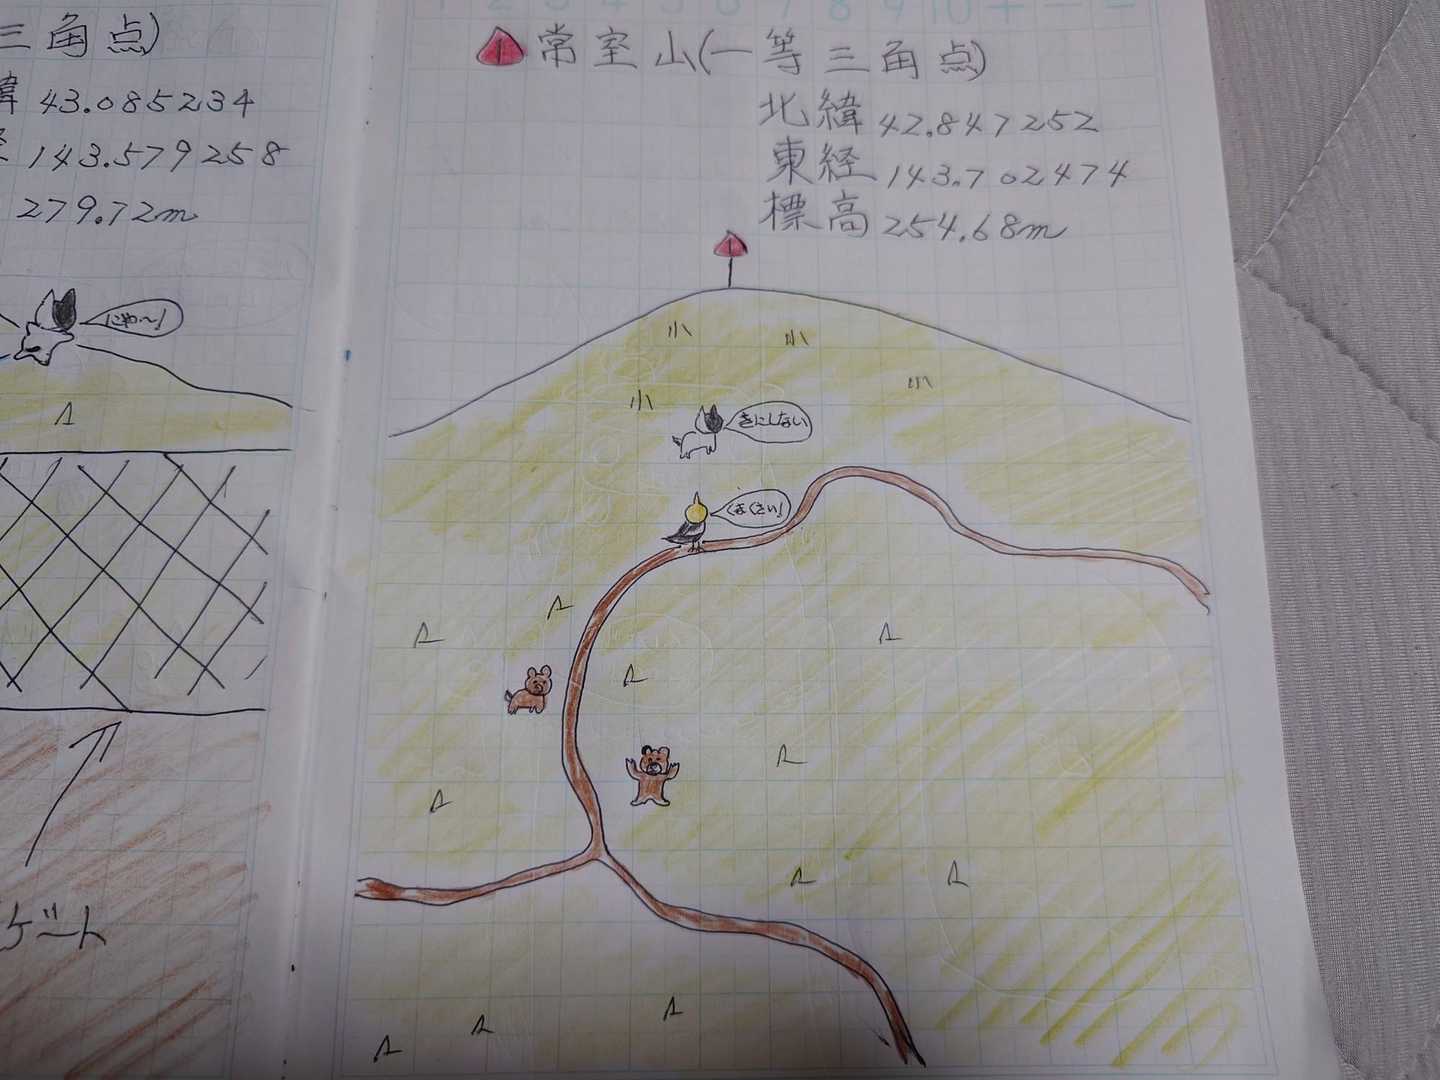 三角点)
緯 43.085234
143.579258
279.72m
にゃ〜!
ゲート
1 2 3 4 5 6 7 8 9 10 + − =
1 常室山(一等三角点)
北緯 42.847252
東経 143.702474
標高 254.68m
1
きにしない
くまくさい!